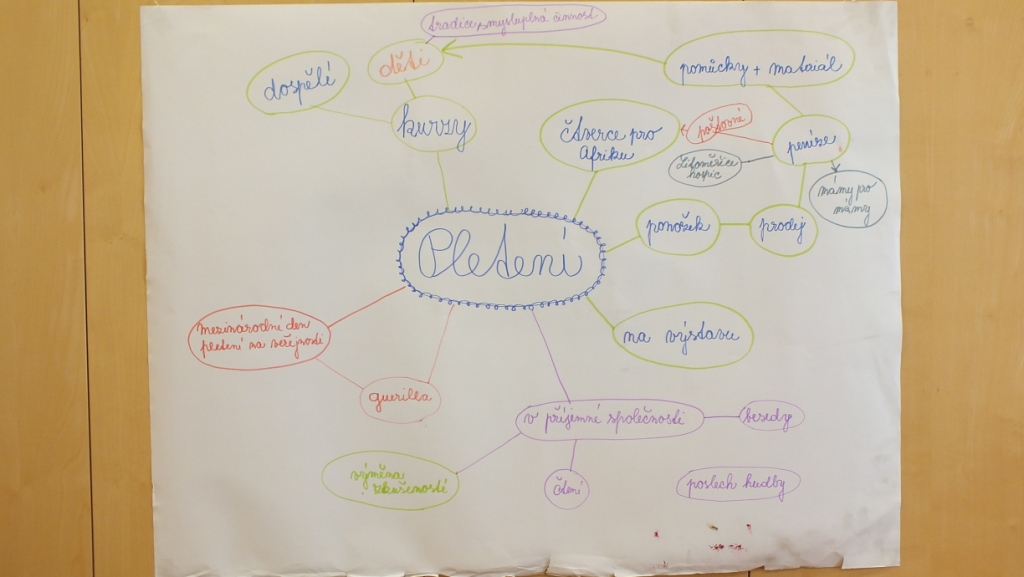 tradice, smysluplná činnost
děti
dospělé
kurzy
pomůcky + mataiál
čtverce pro
Afriku
poštovné
peníze
Litoměřice
hospic
mámy pro
mámy
ponožek
prodej
Pletení
na výstavu
mezinárodné den
pletení na veřejnosti
guerilla
v příjemné společnosti
besedy
výměna
zkušeností
čtení
poslech hudby